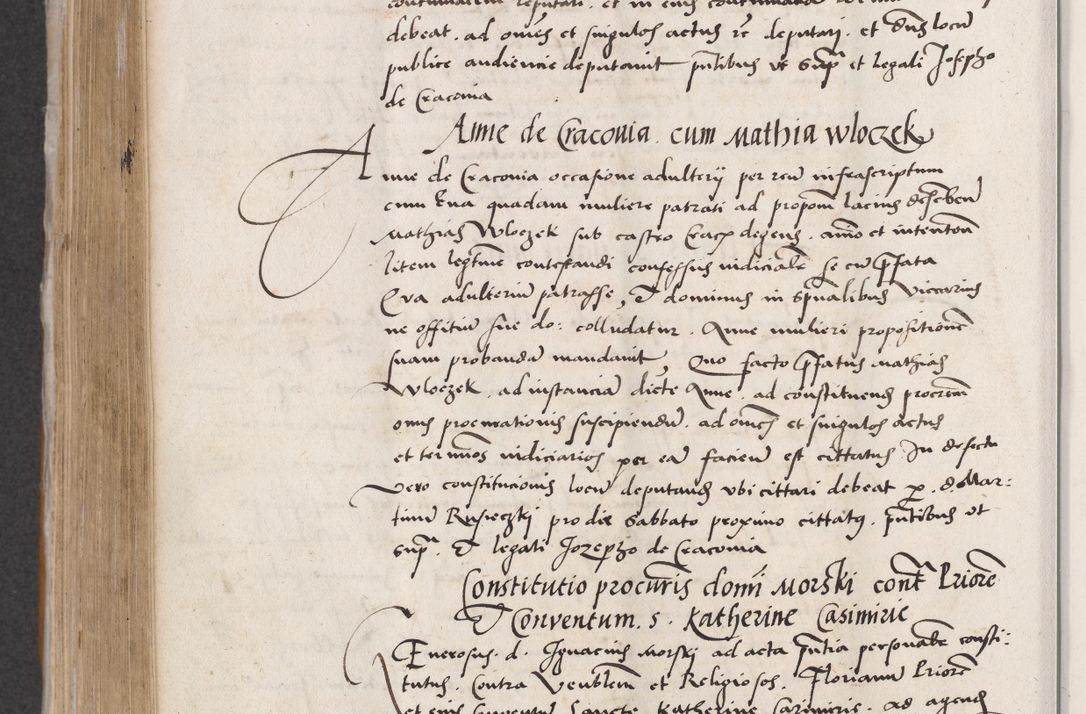 debeat. ad omnes et singulos actus rc deputarj. et Dus locu
publice audiencie deputauit pntibus vt Sup et legali Josepho
de Cracouia
Anne de Cracouia cum Mathia Wloczek
Anne de Cracouia occasione adulterij per reu infrascriptum
cum Eua quadam muliere patrati ad propom lacius describen
Mathias Wloczek sub castro Crac degens. animo et intention
litem legtime contestandi confessus iudiciale se cu pfata
Eva adulteriu patrasse, Et dominus in spualibus Viccarius
ne offitiu sue do: colludatur. Anne mulieri propositione
suam probanda mandauit Quo facto pfatus Mathias
Wloczek. ad instancia dicte Anne. ad constituend procrem
onus procurationis suscipiendu. ad omes et singulos actus
et termnos iudiciarios per ea faciem est cittatus. In defectu
vero constitucionis locu deputand vbi cittari debeat p. d. Mar:
tinu Rusieczki pro die Sabbato proximo cittatq. pntibus vt
Sup. Et legati Jozepho de Cracouia
Constitutio procuris domi Morski cont Priore
Et Conventum. S. Katherine Casimirie
Generosus. d. Ignacius Morskj ad acta pntia personale consti:
tutus. Contra Venblem et Religiosos. Florianu Priore
et eius Conuentu Sancte Katherine Casimirie. ad agend